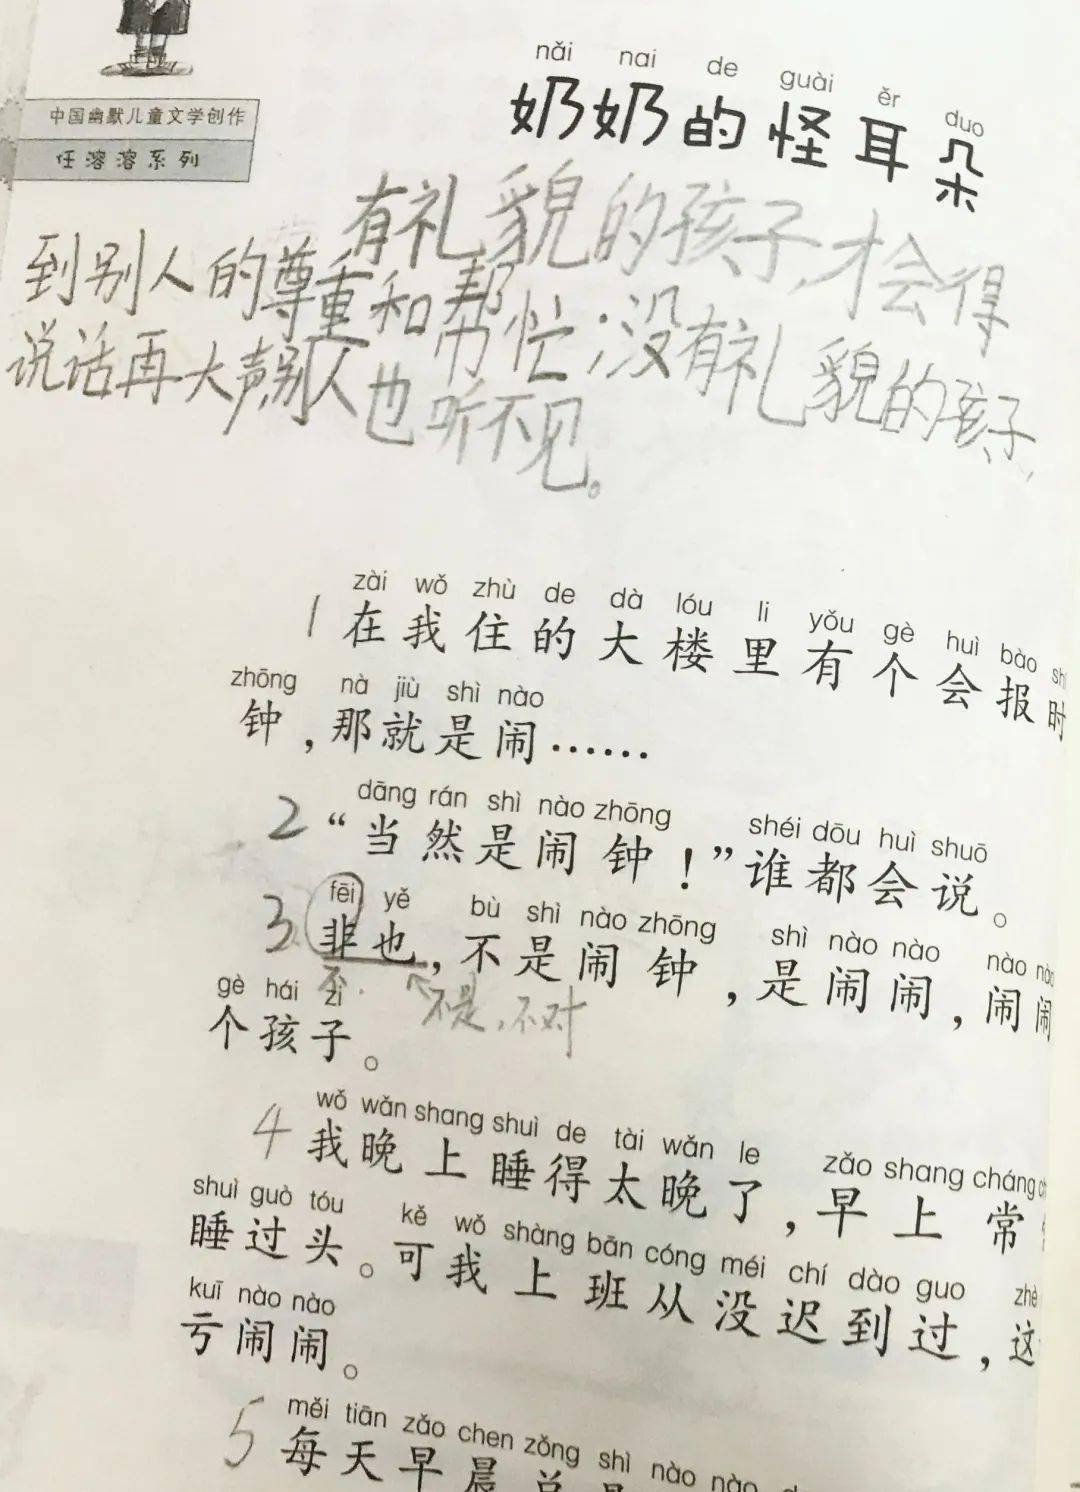 中国幽默儿童文学创作
任溶溶系列
nǎi nai de guài ěr duo
奶奶的怪耳朵
有礼貌的孩子,才会得
到别人的尊重和帮忙;没有礼貌的孩子,
说话再大声,别人也听不见。
zài wǒ zhù de dà lóu li yǒu gè huì bào shí
1 在我住的大楼里有个会报时
zhōng nà jiù shì nào
钟,那就是闹……
dāng rán shì nào zhōng shéi dōu huì shuō
2 “当然是闹钟!”谁都会说。
fēi yě bù shì nào zhōng shì nào nào nào nào
3 非也,不是闹钟,是闹闹,闹闹
不. 不是,不对
gè hái zi
个孩子。
wǒ wǎn shang shuì de tài wǎn le zǎo shang cháng
4 我晚上睡得太晚了,早上常
shuì guò tóu kě wǒ shàng bān cóng méi chí dào guo zhè
睡过头。可我上班从没迟到过,这
kuī nào nào
亏闹闹。
měi tiān zǎo chen zǒng shì nào nào
5 每天早晨总是